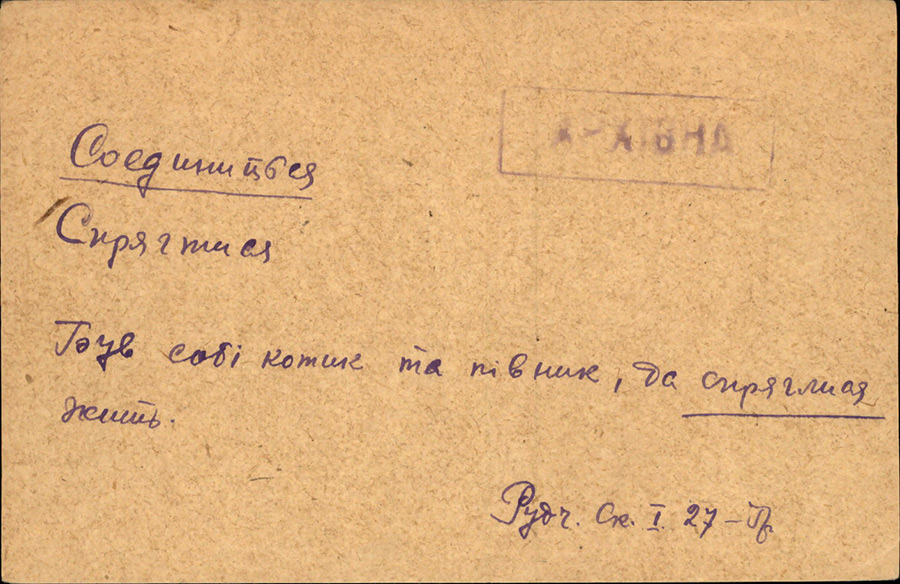 АРХІВНА
Соединиться
Спрягтися
Був собі котик та півник, да спряглися
жить.
Рудч. Ск. I. 27 –